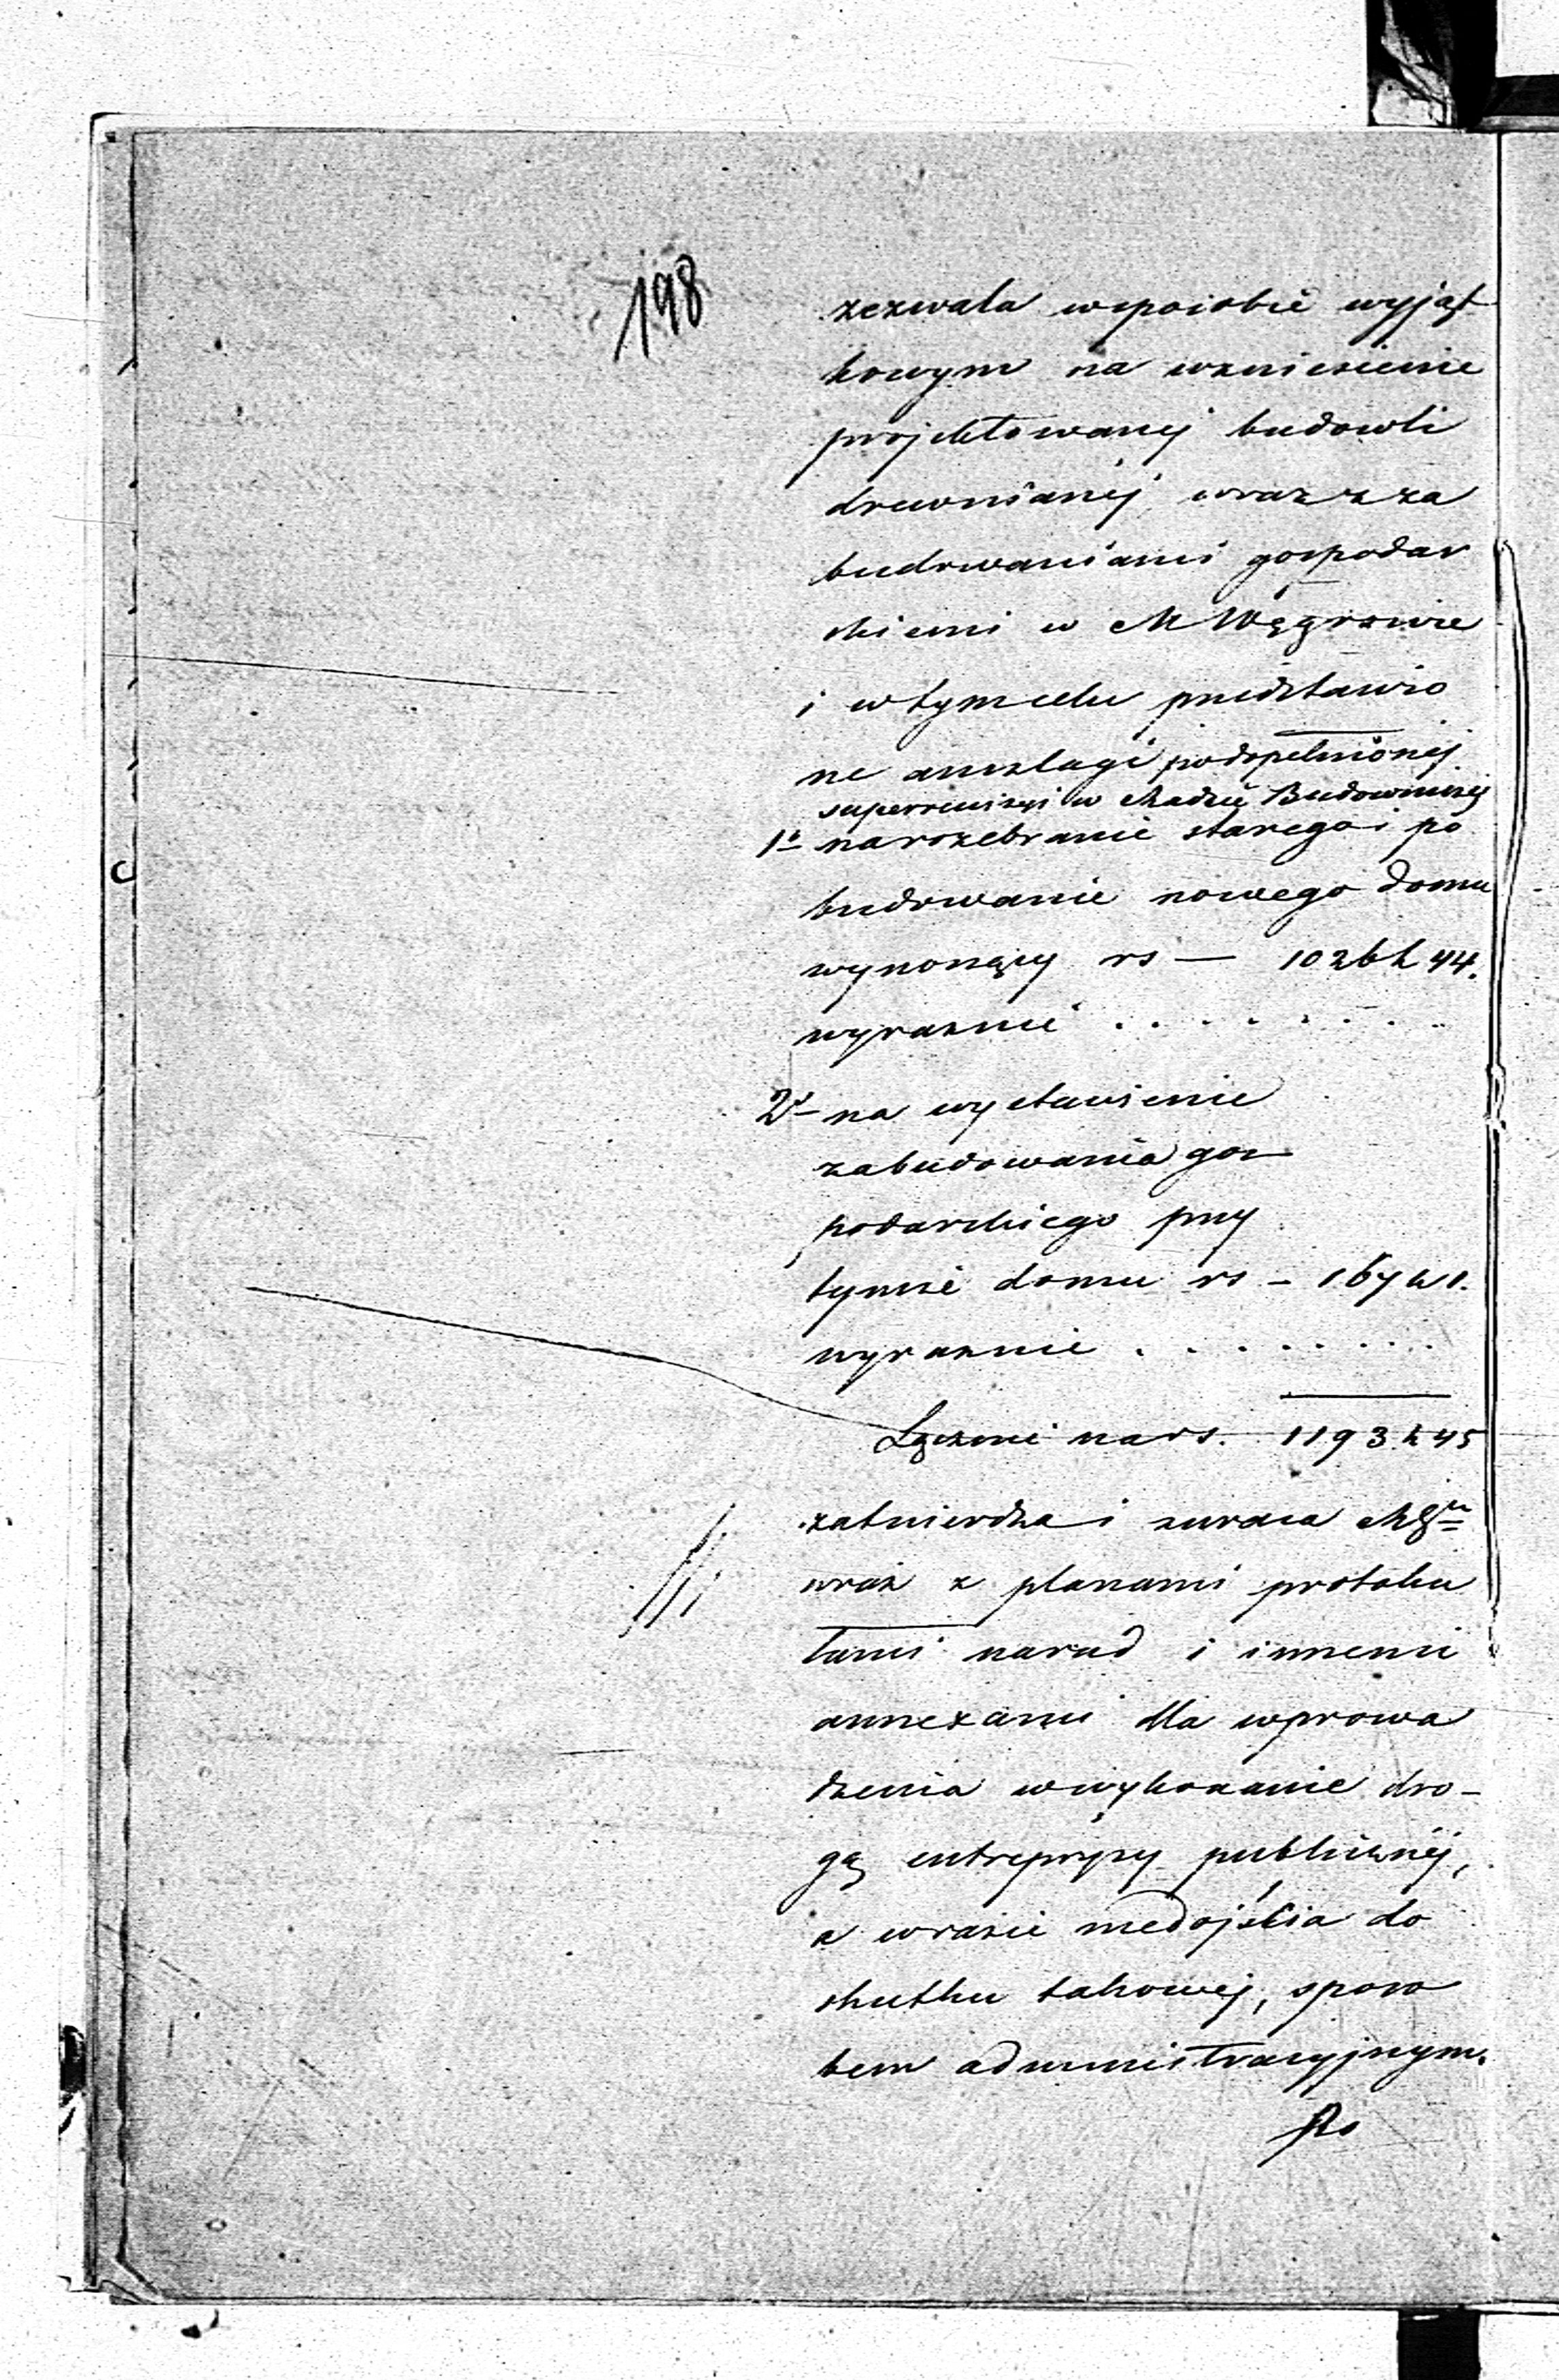 198
zezwala wsposobie wyjąt
kowym na wzniesienie
projektowanej budowli
drewnianej wraz z za
budowaniami gospodar
skiemi w M Węgrowie
i wtym celu przedstawio
ne anszlagi podopełnionej
superrewizyi w Radzie Budowniczej
1o narozebranie starego i po
budowanie nowego domu
wynoszący rs — 1026 k 44.
wyraznie . . . . . . . .
2o na wystawienie
zabudowania gos
podarskiego przy
tymże domu rs – 167 k 1.
wyraznie . . . . . . . .
Łącznie na rs. 1193 k 45
zatwierdza i zwraca
wraz z planami protoku
łami narad i innemi
annexami dla wprowa
dzenia wwykonanie dro-
gą entrepryzy publicznéj,
a wrazie niedojścia do
skutku takowej, sposo
bem administracyjnym.